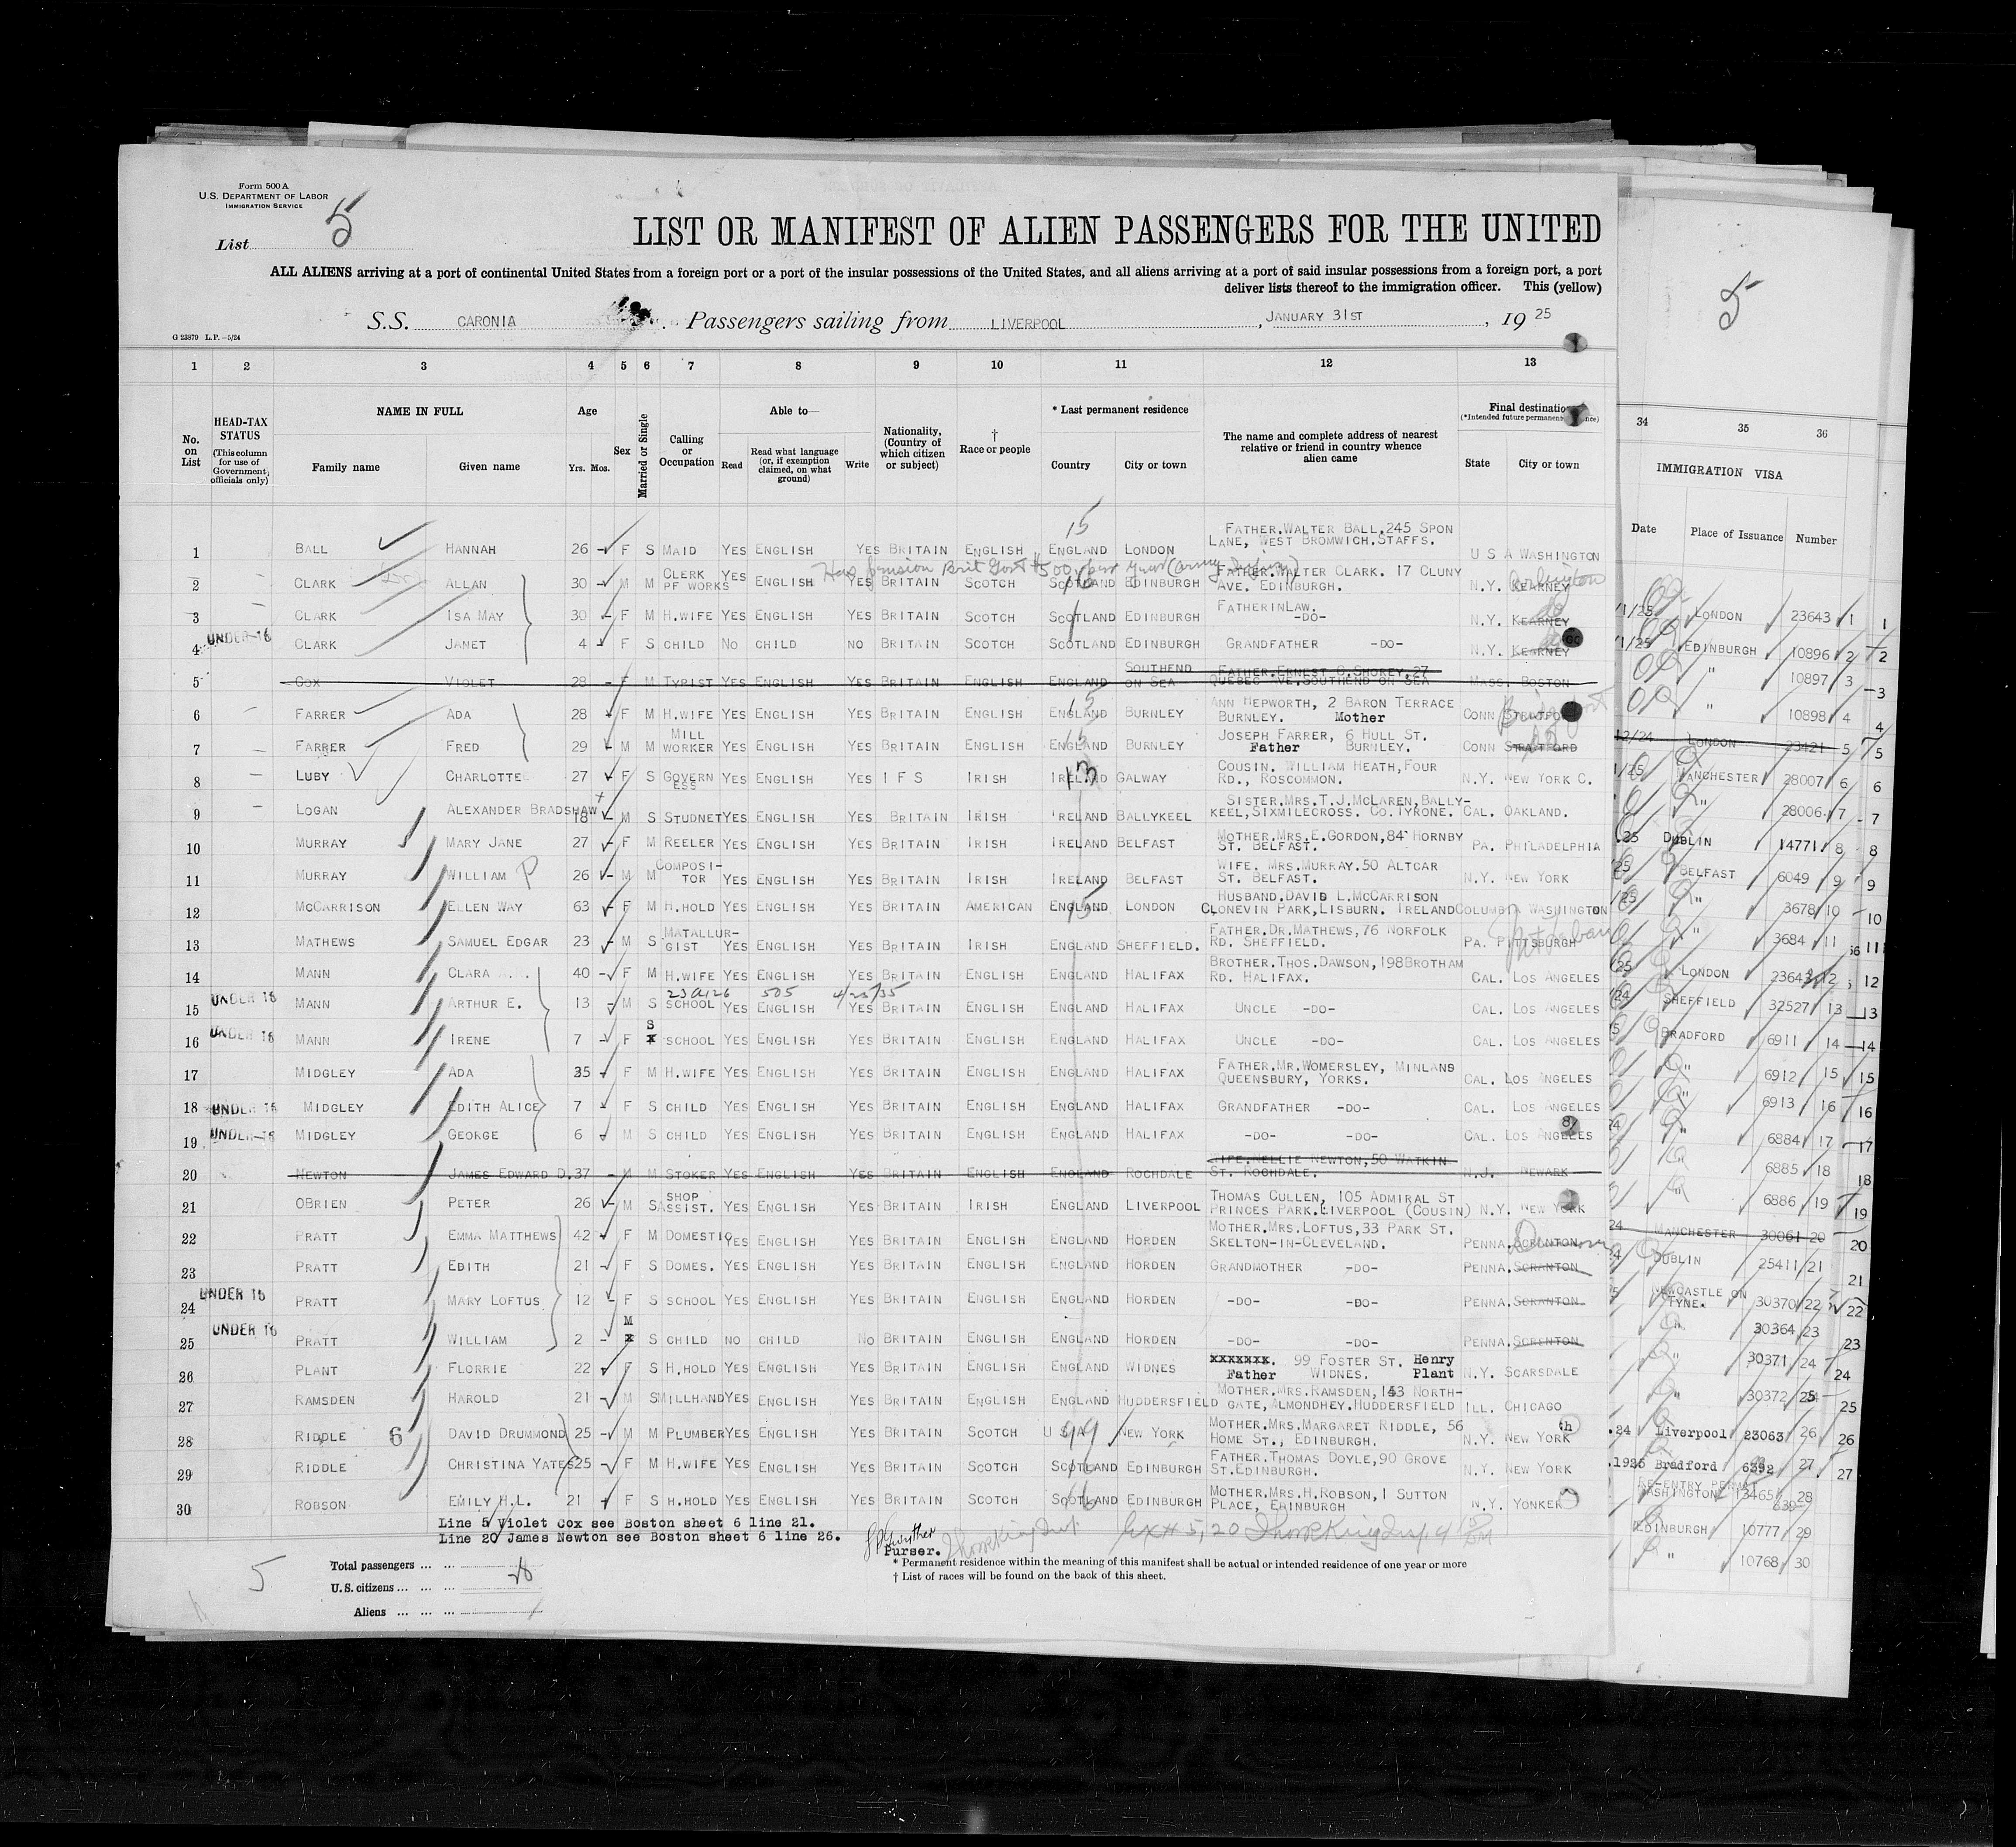 Form 500 A
U.S. DEPARTMENT OF LABOR
IMMIGRATION SERVICE
List 5
LIST OR MANIFEST OF ALIEN PASSENGERS FOR THE UNITED
ALL ALIENS arriving at a port of continental United States from a foreign port or a port of the insular possessions of the United States, and all aliens arriving at a port of said insular possessions from a foreign port, a port
deliver lists thereof to the immigration officer. This (yellow)
S.S. CARONIA Passengers sailing from LIVERPOOL, JANUARY 31ST, 19 25
G 23879 L.P. —5/24
1 2 3 4 5 6 7 8 9 10 11 12 13
No. on List
HEAD-TAX STATUS (This column for use of Government officials only)
NAME IN FULL Family name Given name
Age Yrs. Mos.
Sex
Married or Single
Calling or Occupation
Able to— Read Read what language (or, if exemption claimed, on what ground) Write
Nationality, (Country of which citizen or subject)
† Race or people
* Last permanent residence Country City or town
The name and complete address of nearest relative or friend in country whence alien came
Final destination (*Intended future permanent State City or town
15
1 BALL HANNAH 26 F S MAID YES ENGLISH YES BRITAIN ENGLISH ENGLAND LONDON FATHER.WALTER BALL,245 SPON LANE, WEST BROMWICH.STAFFS. U S A WASHINGTON
Has pension Brit Govt $500 per year (army
2 CLARK ALLAN 30 M M CLERK PF WORKS YES ENGLISH YES BRITAIN SCOTCH SCOTLAND EDINBURGH FATHER.WALTER CLARK. 17 CLUNY AVE. EDINBURGH. N.Y. KEARNEY
3 CLARK ISA MAY 30 F M H.WIFE YES ENGLISH YES BRITAIN SCOTCH SCOTLAND EDINBURGH FATHERINLAW. -DO- N.Y. KEARNEY
UNDER 16
4 CLARK JANET 4 F S CHILD NO CHILD NO BRITAIN SCOTCH SCOTLAND EDINBURGH GRANDFATHER -DO- N.Y. KEARNEY
5 COX VIOLET 28 F M TYPIST YES ENGLISH YES BRITAIN ENGLISH ENGLAND SOUTHEND ON SEA FATHER.ERNEST G.SHOREY,27 QUEBEC AVE.SOUTHEND ON SEA MASS. BOSTON
6 FARRER ADA 28 F M H.WIFE YES ENGLISH YES BRITAIN ENGLISH ENGLAND BURNLEY ANN HEPWORTH, 2 BARON TERRACE BURNLEY. Mother CONN
7 FARRER FRED 29 M M MILL WORKER YES ENGLISH YES BRITAIN ENGLISH ENGLAND BURNLEY JOSEPH FARRER, 6 HULL ST. Father BURNLEY. CONN STRATFORD
8 LUBY CHARLOTTE 27 F S GOVERNESS YES ENGLISH YES I F S IRISH IRELAND GALWAY COUSIN. WILLIAM HEATH,FOUR RD., ROSCOMMON. N.Y. NEW YORK C.
9 LOGAN ALEXANDER BRADSHAW 18 M S STUDNET YES ENGLISH YES BRITAIN IRISH IRELAND BALLYKEEL SISTER.MRS.T.J.MCLAREN,BALLY-KEEL,SIXMILECROSS. CO.TYRONE. CAL. OAKLAND.
10 MURRAY MARY JANE 27 F M REELER YES ENGLISH YES BRITAIN IRISH IRELAND BELFAST MOTHER.MRS.E.GORDON,84 HORNBY ST. BELFAST. PA. PHILADELPHIA
11 MURRAY WILLIAM P 26 M M COMPOSI-TOR YES ENGLISH YES BRITAIN IRISH IRELAND BELFAST WIFE. MRS.MURRAY.50 ALTCAR ST. BELFAST. N.Y. NEW YORK
12 MCCARRISON ELLEN WAY 63 F M H.HOLD YES ENGLISH YES BRITAIN AMERICAN ENGLAND LONDON HUSBAND.DAVID L.MCCARRISON CLONEVIN PARK,LISBURN. IRELAND COLUMBIA WASHINGTON
13 MATHEWS SAMUEL EDGAR 23 M S MATALLUR-GIST YES ENGLISH YES BRITAIN IRISH ENGLAND SHEFFIELD. FATHER.DR.MATHEWS,76 NORFOLK RD. SHEFFIELD. PA. PITTSBURGH
14 MANN CLARA 40 F M H.WIFE YES ENGLISH YES BRITAIN ENGLISH ENGLAND HALIFAX BROTHER.THOS.DAWSON,198BROTHAM RD. HALIFAX. CAL. LOS ANGELES
UNDER 16 505
15 MANN ARTHUR E. 13 M S SCHOOL YES ENGLISH YES BRITAIN ENGLISH ENGLAND HALIFAX UNCLE -DO- CAL. LOS ANGELES
UNDER 16
16 MANN IRENE 7 F S SCHOOL YES ENGLISH YES BRITAIN ENGLISH ENGLAND HALIFAX UNCLE -DO- CAL. LOS ANGELES
17 MIDGLEY ADA 35 F M H.WIFE YES ENGLISH YES BRITAIN ENGLISH ENGLAND HALIFAX FATHER.MR.WOMERSLEY, MINLAND QUEENSBURY, YORKS. CAL. LOS ANGELES
18 UNDER 16 MIDGLEY EDITH ALICE 7 F S CHILD YES ENGLISH YES BRITAIN ENGLISH ENGLAND HALIFAX GRANDFATHER -DO- CAL. LOS ANGELES
19 UNDER 16 MIDGLEY GEORGE 6 M S CHILD YES ENGLISH YES BRITAIN ENGLISH ENGLAND HALIFAX -DO- -DO- CAL. LOS ANGELES
20 NEWTON JAMES EDWARD D. 37 M M STOKER YES ENGLISH YES BRITAIN ENGLISH ENGLAND ROCHDALE WIFE.NELLIE NEWTON,50 WATKIN ST. ROCHDALE. N.J. NEWARK
21 OBRIEN PETER 26 M S SHOP ASSIST. YES ENGLISH YES BRITAIN IRISH ENGLAND LIVERPOOL THOMAS CULLEN, 105 ADMIRAL ST PRINCES PARK.LIVERPOOL (COUSIN) N.Y. NEW YORK
22 PRATT EMMA MATTHEWS 42 F M DOMESTIC YES ENGLISH YES BRITAIN ENGLISH ENGLAND HORDEN MOTHER.MRS.LOFTUS,33 PARK ST. SKELTON-IN-CLEVELAND. PENNA. SCRANTON
23 PRATT EDITH 21 F S DOMES. YES ENGLISH YES BRITAIN ENGLISH ENGLAND HORDEN GRANDMOTHER -DO- PENNA. SCRANTON
UNDER 16
24 PRATT MARY LOFTUS 12 F S SCHOOL YES ENGLISH YES BRITAIN ENGLISH ENGLAND HORDEN -DO- -DO- PENNA. SCRANTON
UNDER 16
25 PRATT WILLIAM 2 M S CHILD NO CHILD NO BRITAIN ENGLISH ENGLAND HORDEN -DO- -DO- PENNA. SCRENTON
26 PLANT FLORRIE 22 F S H.HOLD YES ENGLISH YES BRITAIN ENGLISH ENGLAND WIDNES xxxxxxx. 99 FOSTER ST. Henry Father WIDNES. Plant N.Y. SCARSDALE
27 RAMSDEN HAROLD 21 M S MILLHAND YES ENGLISH YES BRITAIN ENGLISH ENGLAND HUDDERSFIELD MOTHER.MRS.RAMSDEN,143 NORTH-GATE,ALMONDHEY.HUDDERSFIELD ILL. CHICAGO
28 RIDDLE 6 DAVID DRUMMOND 25 M M PLUMBER YES ENGLISH YES BRITAIN SCOTCH U S A 99 NEW YORK MOTHER.MRS.MARGARET RIDDLE, 56 HOME ST., EDINBURGH. N.Y. NEW YORK
29 RIDDLE CHRISTINA YATES 25 F M H.WIFE YES ENGLISH YES BRITAIN SCOTCH SCOTLAND EDINBURGH FATHER.THOMAS DOYLE,90 GROVE ST.EDINBURGH. N.Y. NEW YORK
30 ROBSON EMILY H.L. 21 F S H.HOLD YES ENGLISH YES BRITAIN SCOTCH SCOTLAND EDINBURGH MOTHER.MRS.H.ROBSON,1 SUTTON PLACE, EDINBURGH N.Y. YONKER
Line 5 Violet Cox see Boston sheet 6 line 21.
Line 20 James Newton see Boston sheet 6 line 26.
Purser.
5
Total passengers ... ...
U.S. citizens ... ... ...
Aliens ... ... ...
* Permanent residence within the meaning of this manifest shall be actual or intended residence of one year or more
† List of races will be found on the back of this sheet.
5
34 35 36
IMMIGRATION VISA
Date Place of Issuance Number
/1/25 LONDON 23643 1 1
/1/25 EDINBURGH 10896 2 2
" 10897 3 3
" 10898 4 4
12/24 LONDON 23421 5 5
MANCHESTER 28007 6 6
" 28006 7 7
DUBLIN 14771 8 8
BELFAST 6049 9 9
" 3678 10 10
" 3684 11 11
LONDON 23643 12 12
SHEFFIELD 32527 13 13
BRADFORD 6911 14 14
" 6912 15 15
" 6913 16 16
" 6884 17 17
" 6885 18 18
" 6886 19 19
MANCHESTER 30061 20 20
DUBLIN 25411 21 21
NEWCASTLE ON TYNE. 30370 22 22
" 30364 23 23
" 30371 24 24
" 30372 25 25
.24 Liverpool 23063 26 26
.1925 Bradford 6392 27 27
RE-ENTRY PERMIT WASHINGTON 28
EDINBURGH 10777 29
" 10768 30